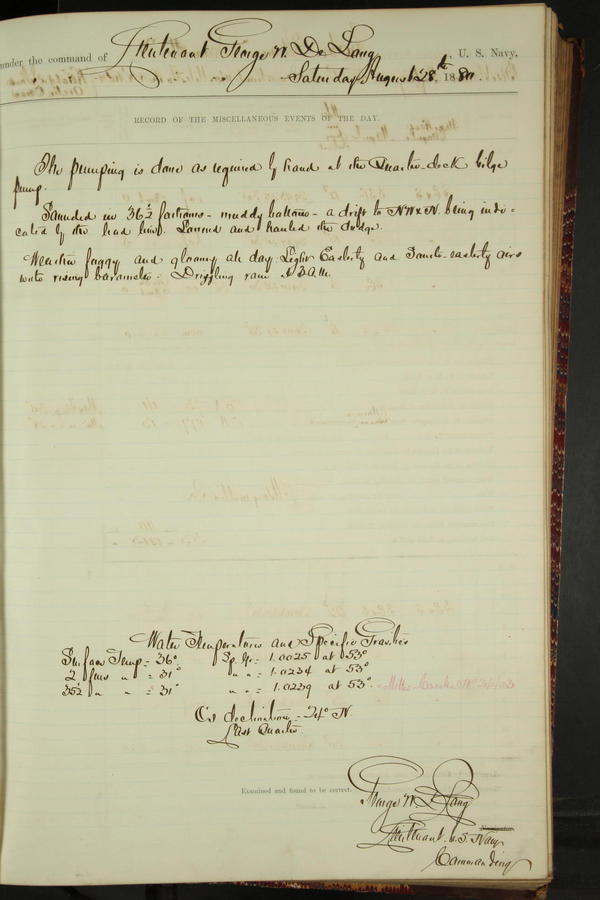 under the command of Lieutenant George W. De Long, U. S. Navy,
Saturday August 28th, 1880.
RECORD OF THE MISCELLANEOUS EVENTS OF THE DAY.
The pumping is done as required by hand at the Quarter-deck bilge
pump.
Sounded in 36½ fathoms - muddy bottom - a drift to NW x N. being indi-
cated by the lead line. Lowered and hauled the dredge.
Weather foggy and gloomy all day. Light Easterly and South-easterly airs
with rising barometer. Drizzling rain A.M.
Water Temperatures and Specific Gravities
Surface Temp = 36° Sp. Gr = 1.0025 at 53°
2 fms " = 31° " " = 1.0234 at 53°
35½ " " = 31° " " = 1.0239 at 53°.
C's declination = 24° N.
Last Quarter.
Examined and found to be correct.
George W. De Long
Lieutenant U.S. Navy
Navigator.
Commanding